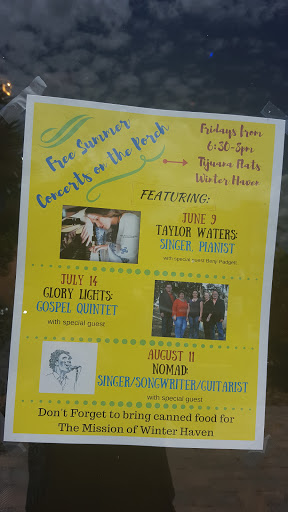 Free Summer
Concerts on the Porch
Fridays from
6:30-8pm
Tijuana Flats
Winter Haven
FEATURING:
JUNE 9
TAYLOR WATERS:
SINGER, PIANIST
with special guest Billy Padgett
JULY 14
GLORY LIGHTS:
GOSPEL QUINTET
with special guest
AUGUST 11
NOMAD:
SINGER/SONGWRITER/GUITARIST
with special guest
Don't Forget to bring canned food for
The Mission of Winter Haven